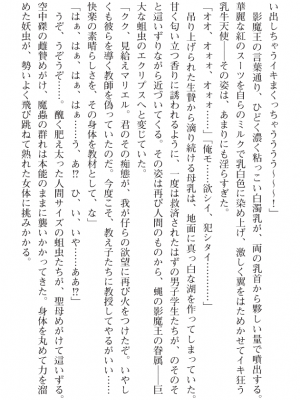 い出しちゃうイキまくっちゃううううう〜〜〜！」
影魔王の言葉通り、ひどく濃く粘っこい白濁乳が、両の乳首から夥しい量で噴出する。
華麗な紅のスーツを自らのミルクで乳白色に染め上げ、激しく翼をはためかせてイキ狂う
乳牛天使――その姿は、あまりにも淫らすぎた。
「オオ、オォォ、オオ……」「俺モ……欲シイ、犯シタイ……」
吊り上げられた生贄から滴り続ける母乳は、地面に真っ白な湖を作ってしまっていた。
甘く匂い立つ香りに誘われるように、一度は救済されたはずの男子学生たちが、のそのそ
と這いずりながら近づいてくる。その姿は再び人間のものから、蠅の影魔王の眷属――巨
大な蛆虫のエクリプスへと変わっていた。
「クク、見給えマリエル。君のその痴態が、我が仔らの欲望に再び火をつけたぞ。いやし
くも彼らを導く教師を偽っていたのだ、今度こそ、教え子たちに教授してやるがいい――
快楽の素晴らしさを、その身体を教材として、な」
「はぁ、はぁ、はぁ……？　ひ、いや……ああ!?」
うぞ、うぞぞぞ……。醜く肥え太った人間サイズの蛆虫たちが、聖母めがけて這いずる。
空中磔の雌贄めがけ、魔蟲の群れは本能のままに襲いかかってきた。身体を丸めて力を溜
めた妖虫が、勢いよく飛び跳ねて熟れた女体に挑みかかる。